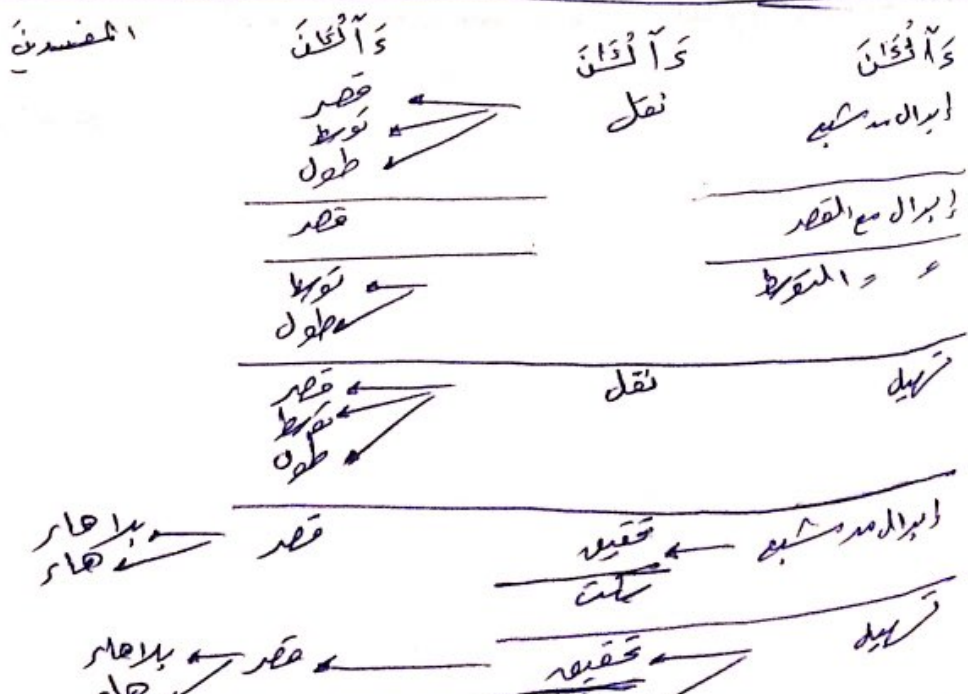 ءَآلْـَٰٔنَ ءَآلْـَٰٔنَ ءَآلْـَٰٔنَ المفسدين
إبدال مد مشبع نقل قصر
توسط
طول
إبدال مع القصر قصر
〃 〃 التوسط توسط
طول
تسهيل نقل قصر
توسط
طول
إبدال مد مشبع تحقيق قصر بلا هاء
سكت هاء
تسهيل تحقيق قصر بلا هاء
هاء